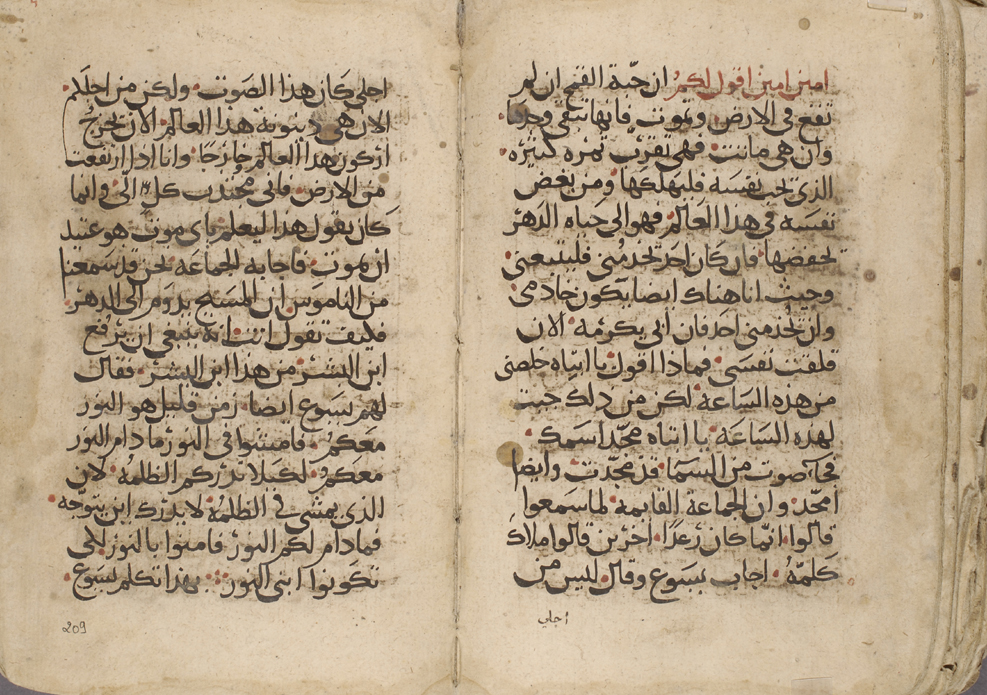 امين امين اقول لكم ان حبة القمح ان لم
تقع في الارض وتموت فانها تبقى وحدها
وان هي ماتت فهي تقرب ثمره كثيره
الذي يحب نفسه فليهلكها ومن بغض
نفسه في هذا العالم فهو الى حياه الدهر
يحفضها فان كان احد يخدمني فليتبعني
وحيث انا هناك ايضا يكون خادمي
وان يخدمني احد فان ابي يكرمه الان
قلقت نفسي فماذا اقول يا ابتاه خلصني
من هذه الساعة لكن من ذلك جيت
لهذه الساعة يا ابتاه مجد اسمك
فجا صوت من السما قد مجدت وايضا
امجد وان الجماعة القايمه لما سمعوا
قالوا انما كان رعدا اخرين قالوا ملاك
كلمه اجاب يسوع وقال ليس من
اجلي
اجلي كان هذا الصوت ولكن من اجلكم
الان هي دينونة هذا العالم الان يخرج
اركون هذا العالم خارجا وانا اذا ارتفعت
من الارض فاني مجتذب كل الي وانما
كان يقول هذا ليعلم باي موت هو عتيد
ان يموت فاجابه الجماعه نحن قد سمعنا
من الناموس ان المسيح يدوم الى الدهر
فكيف تقول انت انه ينبغي ان يرفع
ابن البشر من هذا ابن البشر فقال
لهم يسوع ايضا زمن قليل هو النور
معكم فامشوا في النور ما دام النور
معكم لكيلا تدرككم الظلمه لان
الذي يمشي في الظلمه لا يدرك اين يتوجه
فما دام لكم النور فامنوا بالنور لكي
تكونوا ابني النور بهذا تكلم يسوع
209